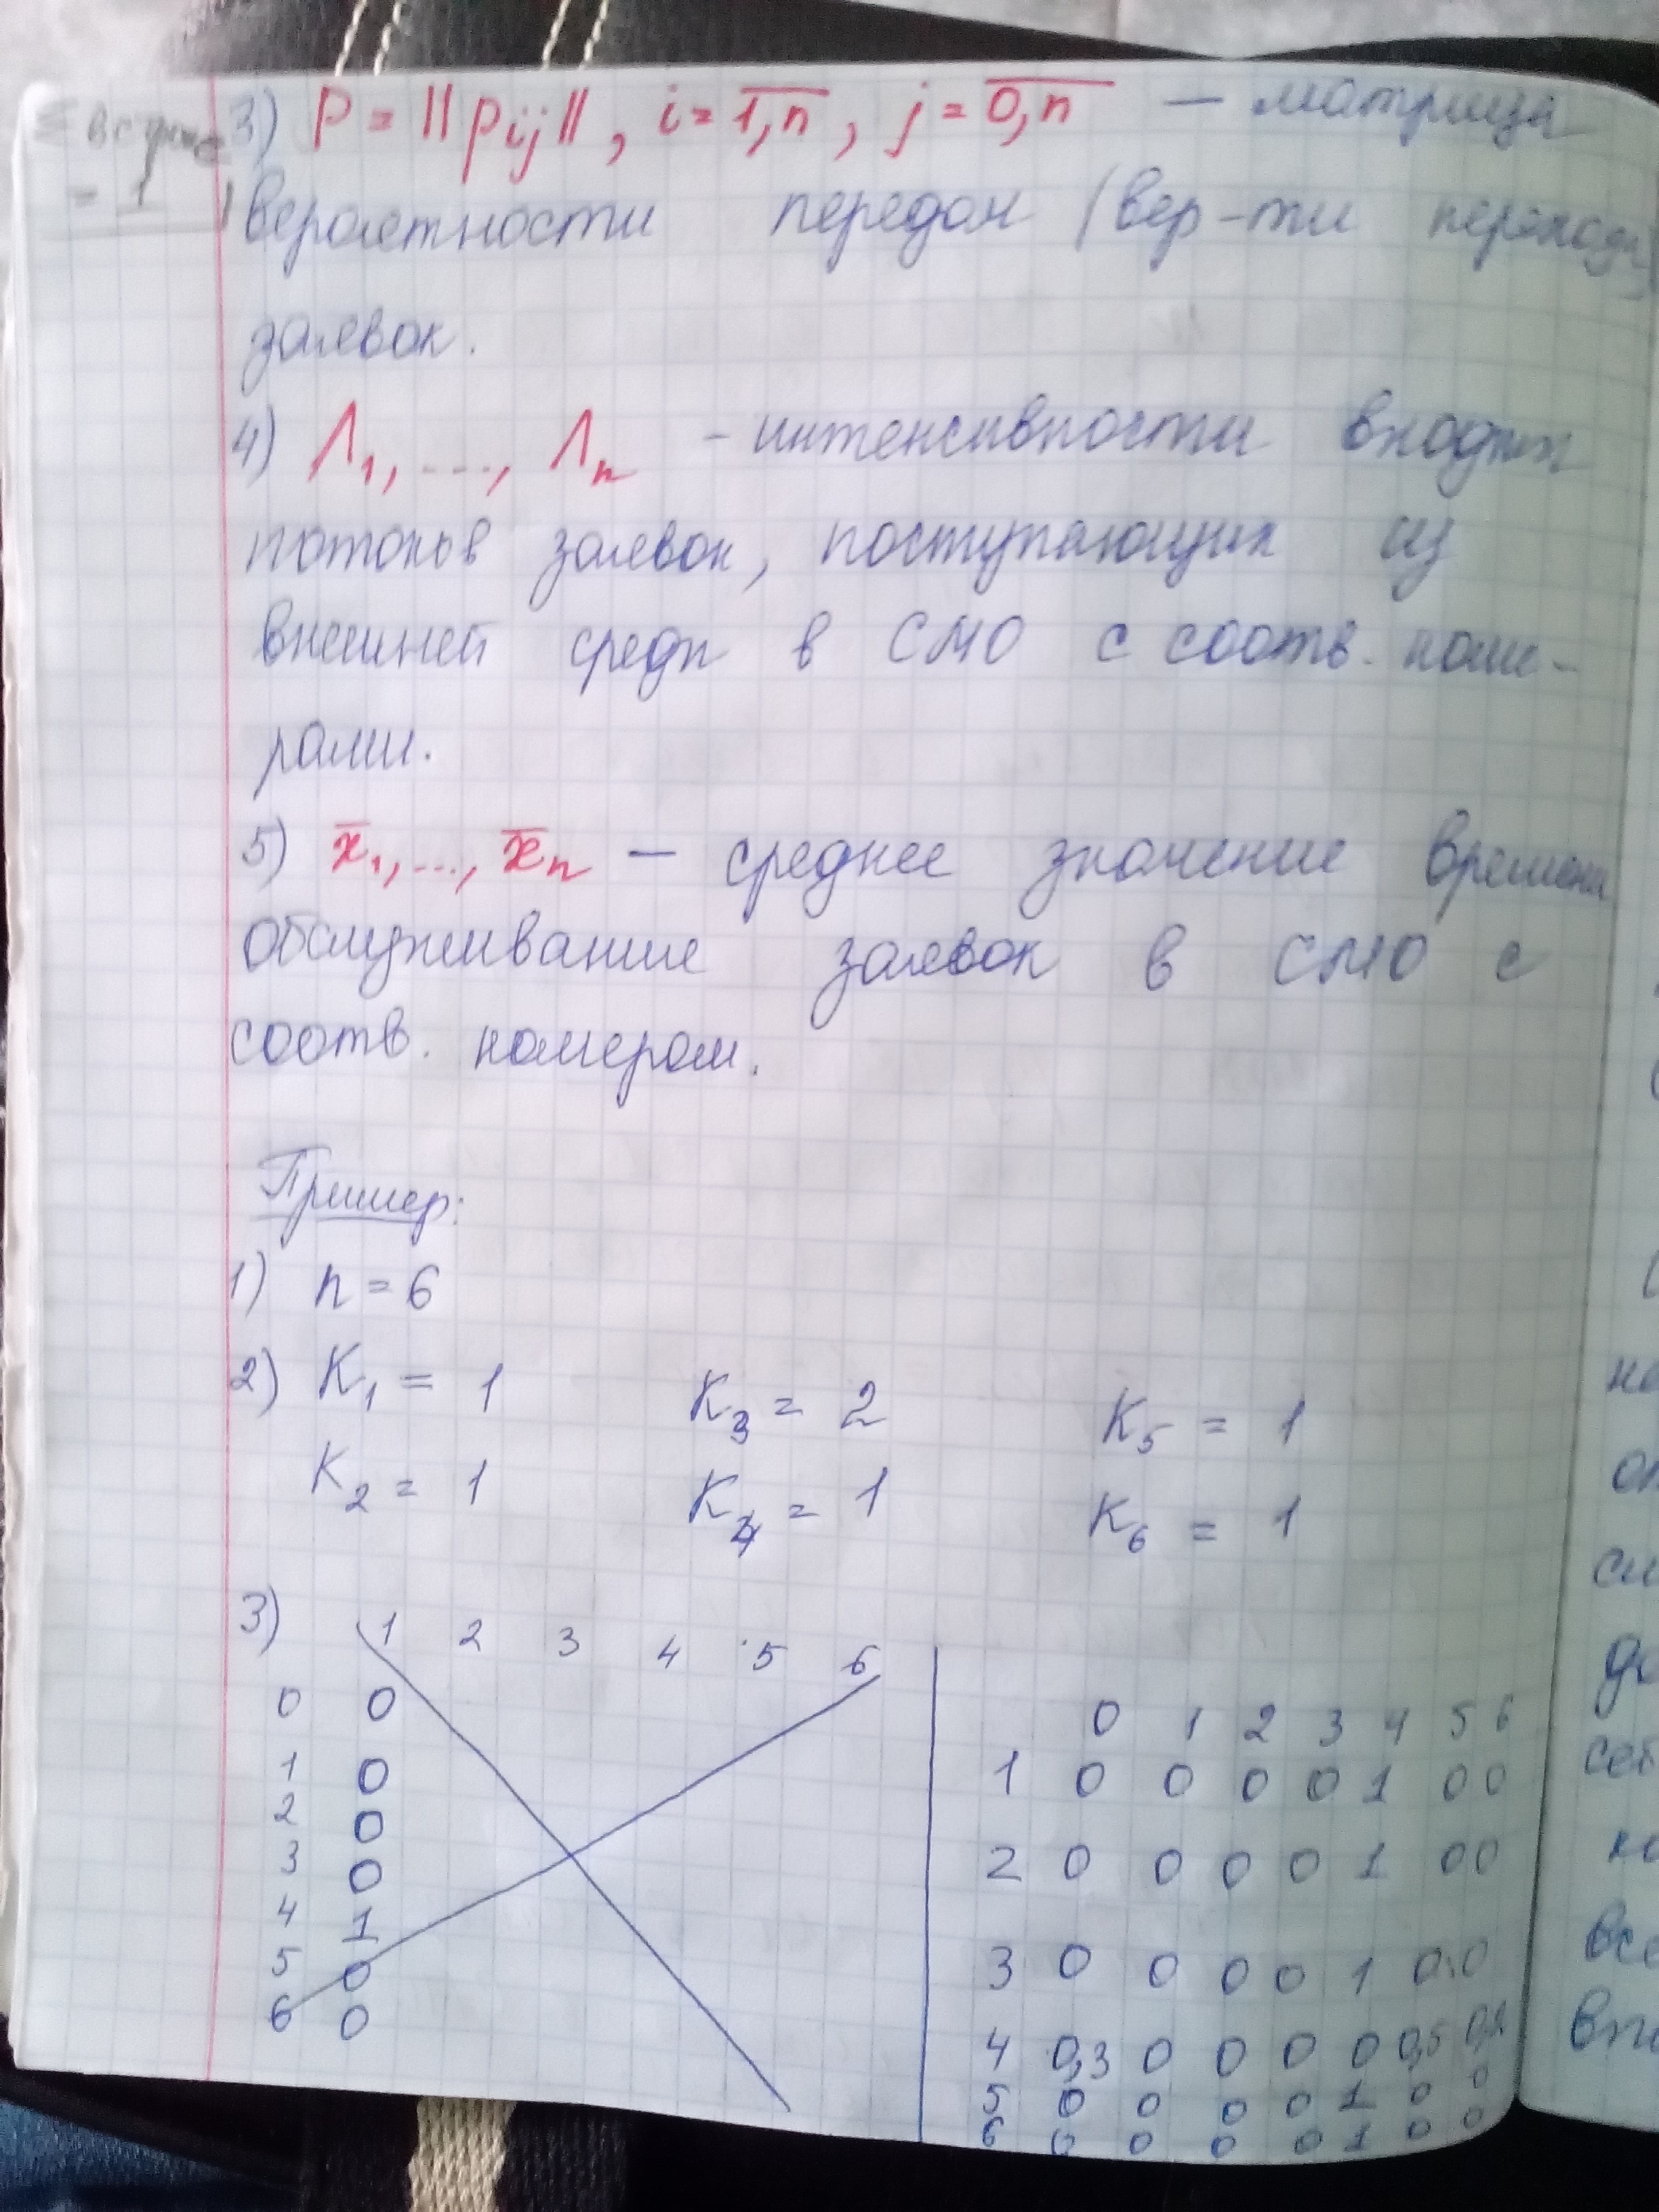 Σ в строке
= 1
3) P = ||pij||, i = 1,n, j = 0,n — матрица
вероятности передач (вер-ти перехода)
заявок.
4) Λ1, ..., Λn - интенсивности входящих
потоков заявок, поступающих из
внешней среды в СМО с соотв. номе-
рами.
5) x̄1, ..., x̄n — среднее значение времени
обслуживание заявок в СМО с
соотв. номером.
Пример:
1) n = 6
2) K1 = 1 K3 = 2 K5 = 1
K2 = 1 K4 = 1 K6 = 1
3) 1 2 3 4 5 6
0 0
1 0
2 0
3 0
4 1
5 0
6 0
0 1 2 3 4 5 6
1 0 0 0 0 1 0 0
2 0 0 0 0 1 0 0
3 0 0 0 0 1 0 0
4 0,3 0 0 0 0 0,5 0,2
5 0 0 0 0 1 0 0
6 0 0 0 0 1 0 0